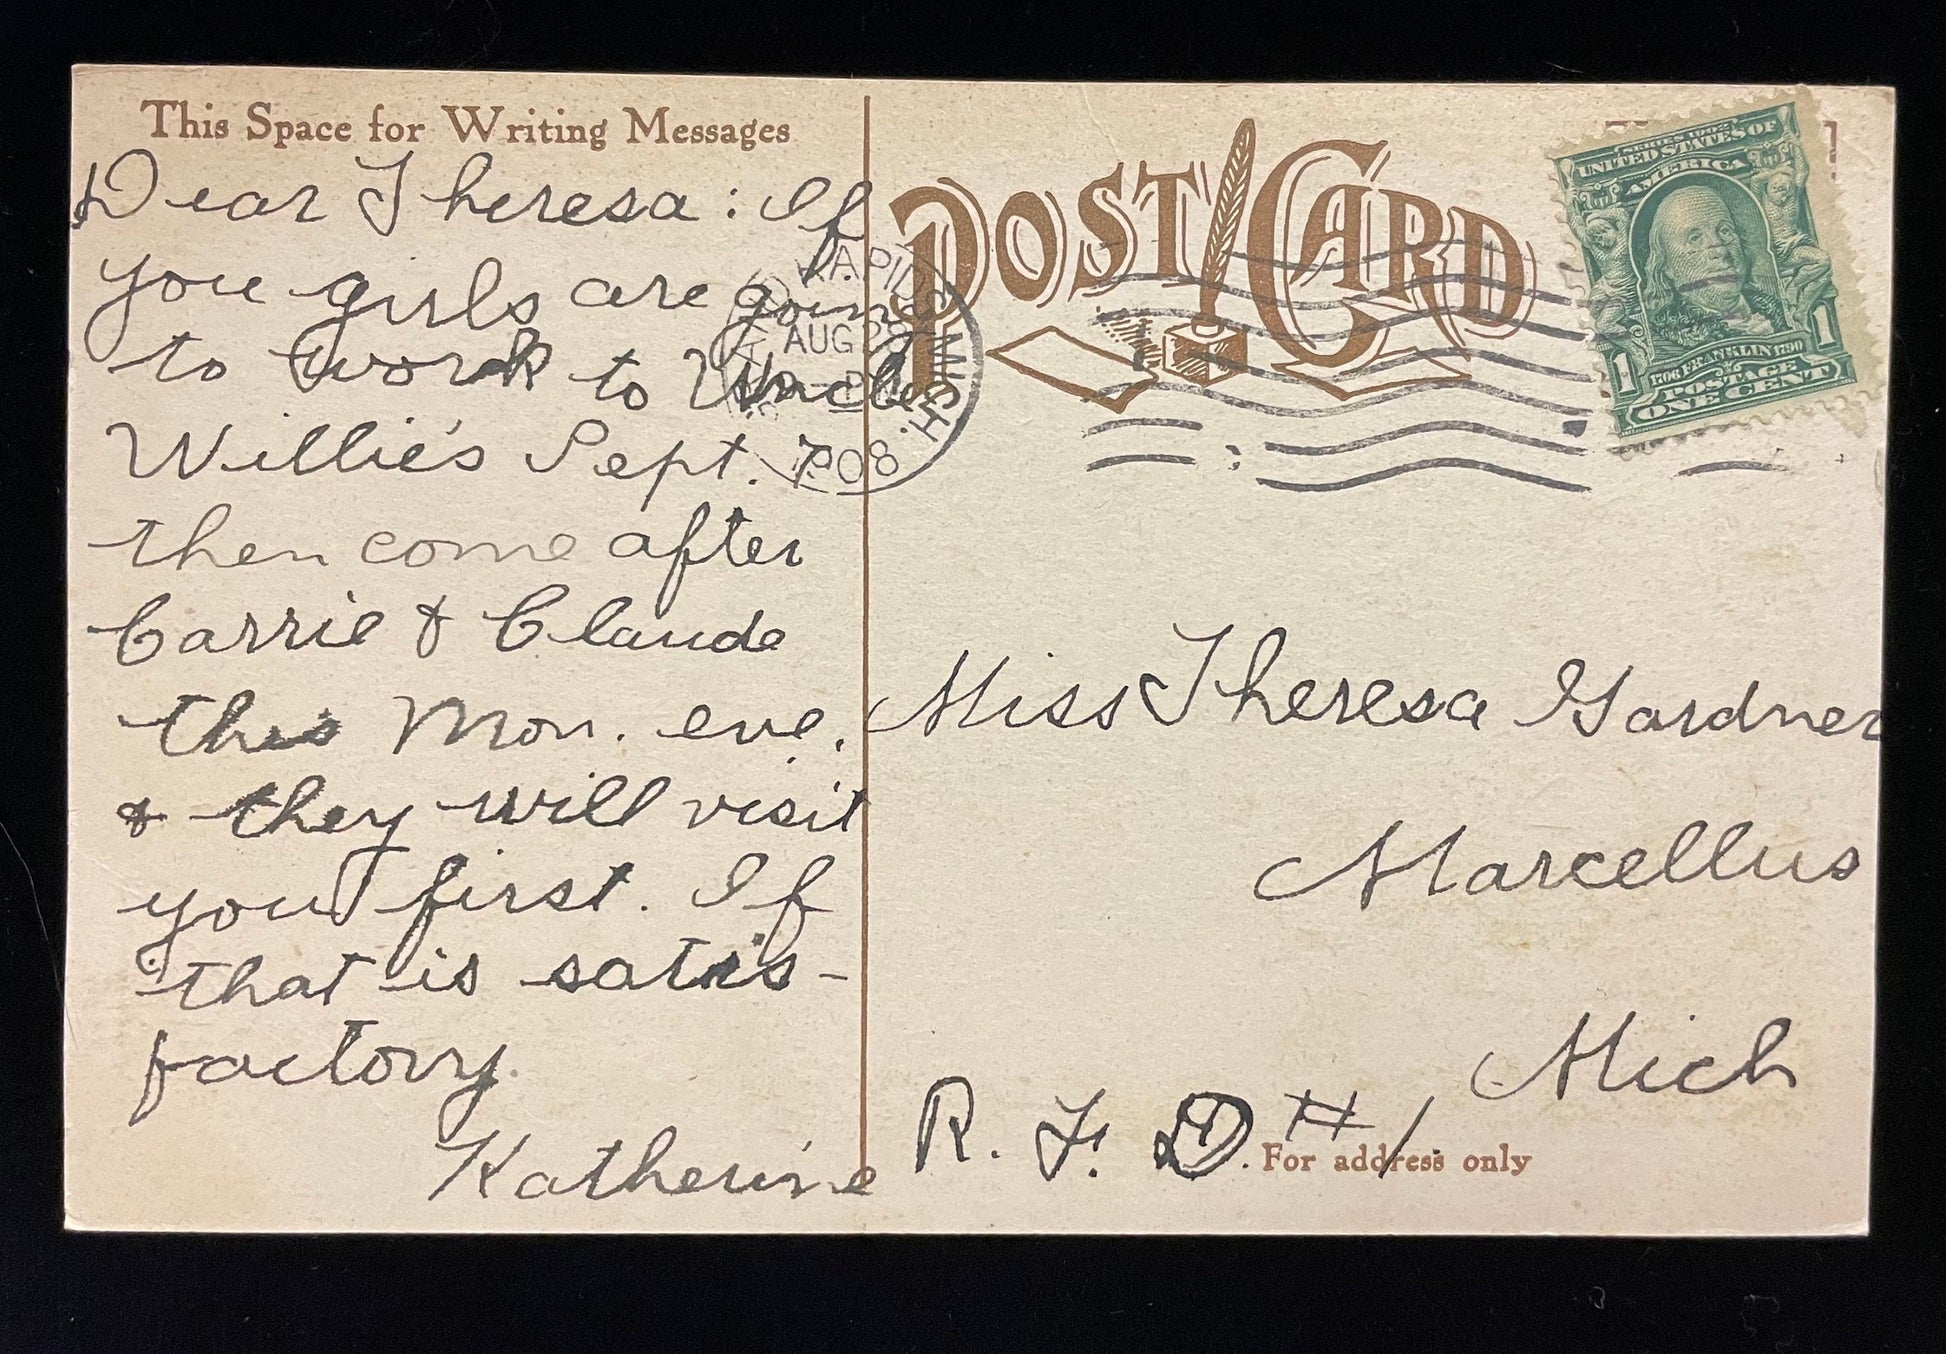 This Space for Writing Messages
Dear Theresa: If
you girls are going
to work to Uncle
Willie's Sept. 7.
then come after
Carrie & Claude
this Mon. eve.
& they will visit
you first. If
that is satis-
factory.
Katherine
POST CARD
RAPIDS MICH.
AUG
1908
SERIES 1902
UNITED STATES OF
AMERICA
1706 FRANKLIN 1790
POSTAGE
1 ONE CENT 1
Miss Theresa Gardner
Marcellus
Mich
R. F. D. # 1.
For address only